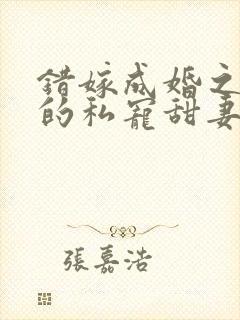 错嫁成婚之
的私宠甜妻
張嘉浩